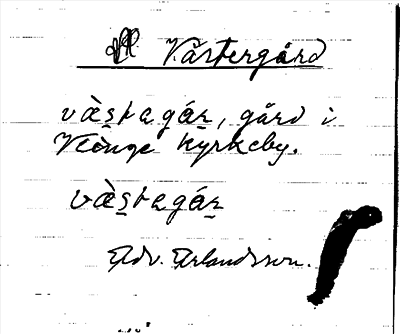 Västergård
vàs̱tagár̠, gård i
Klinge Kyrkeby.
vàs̱tagár̠
Adv. Erlandsson.